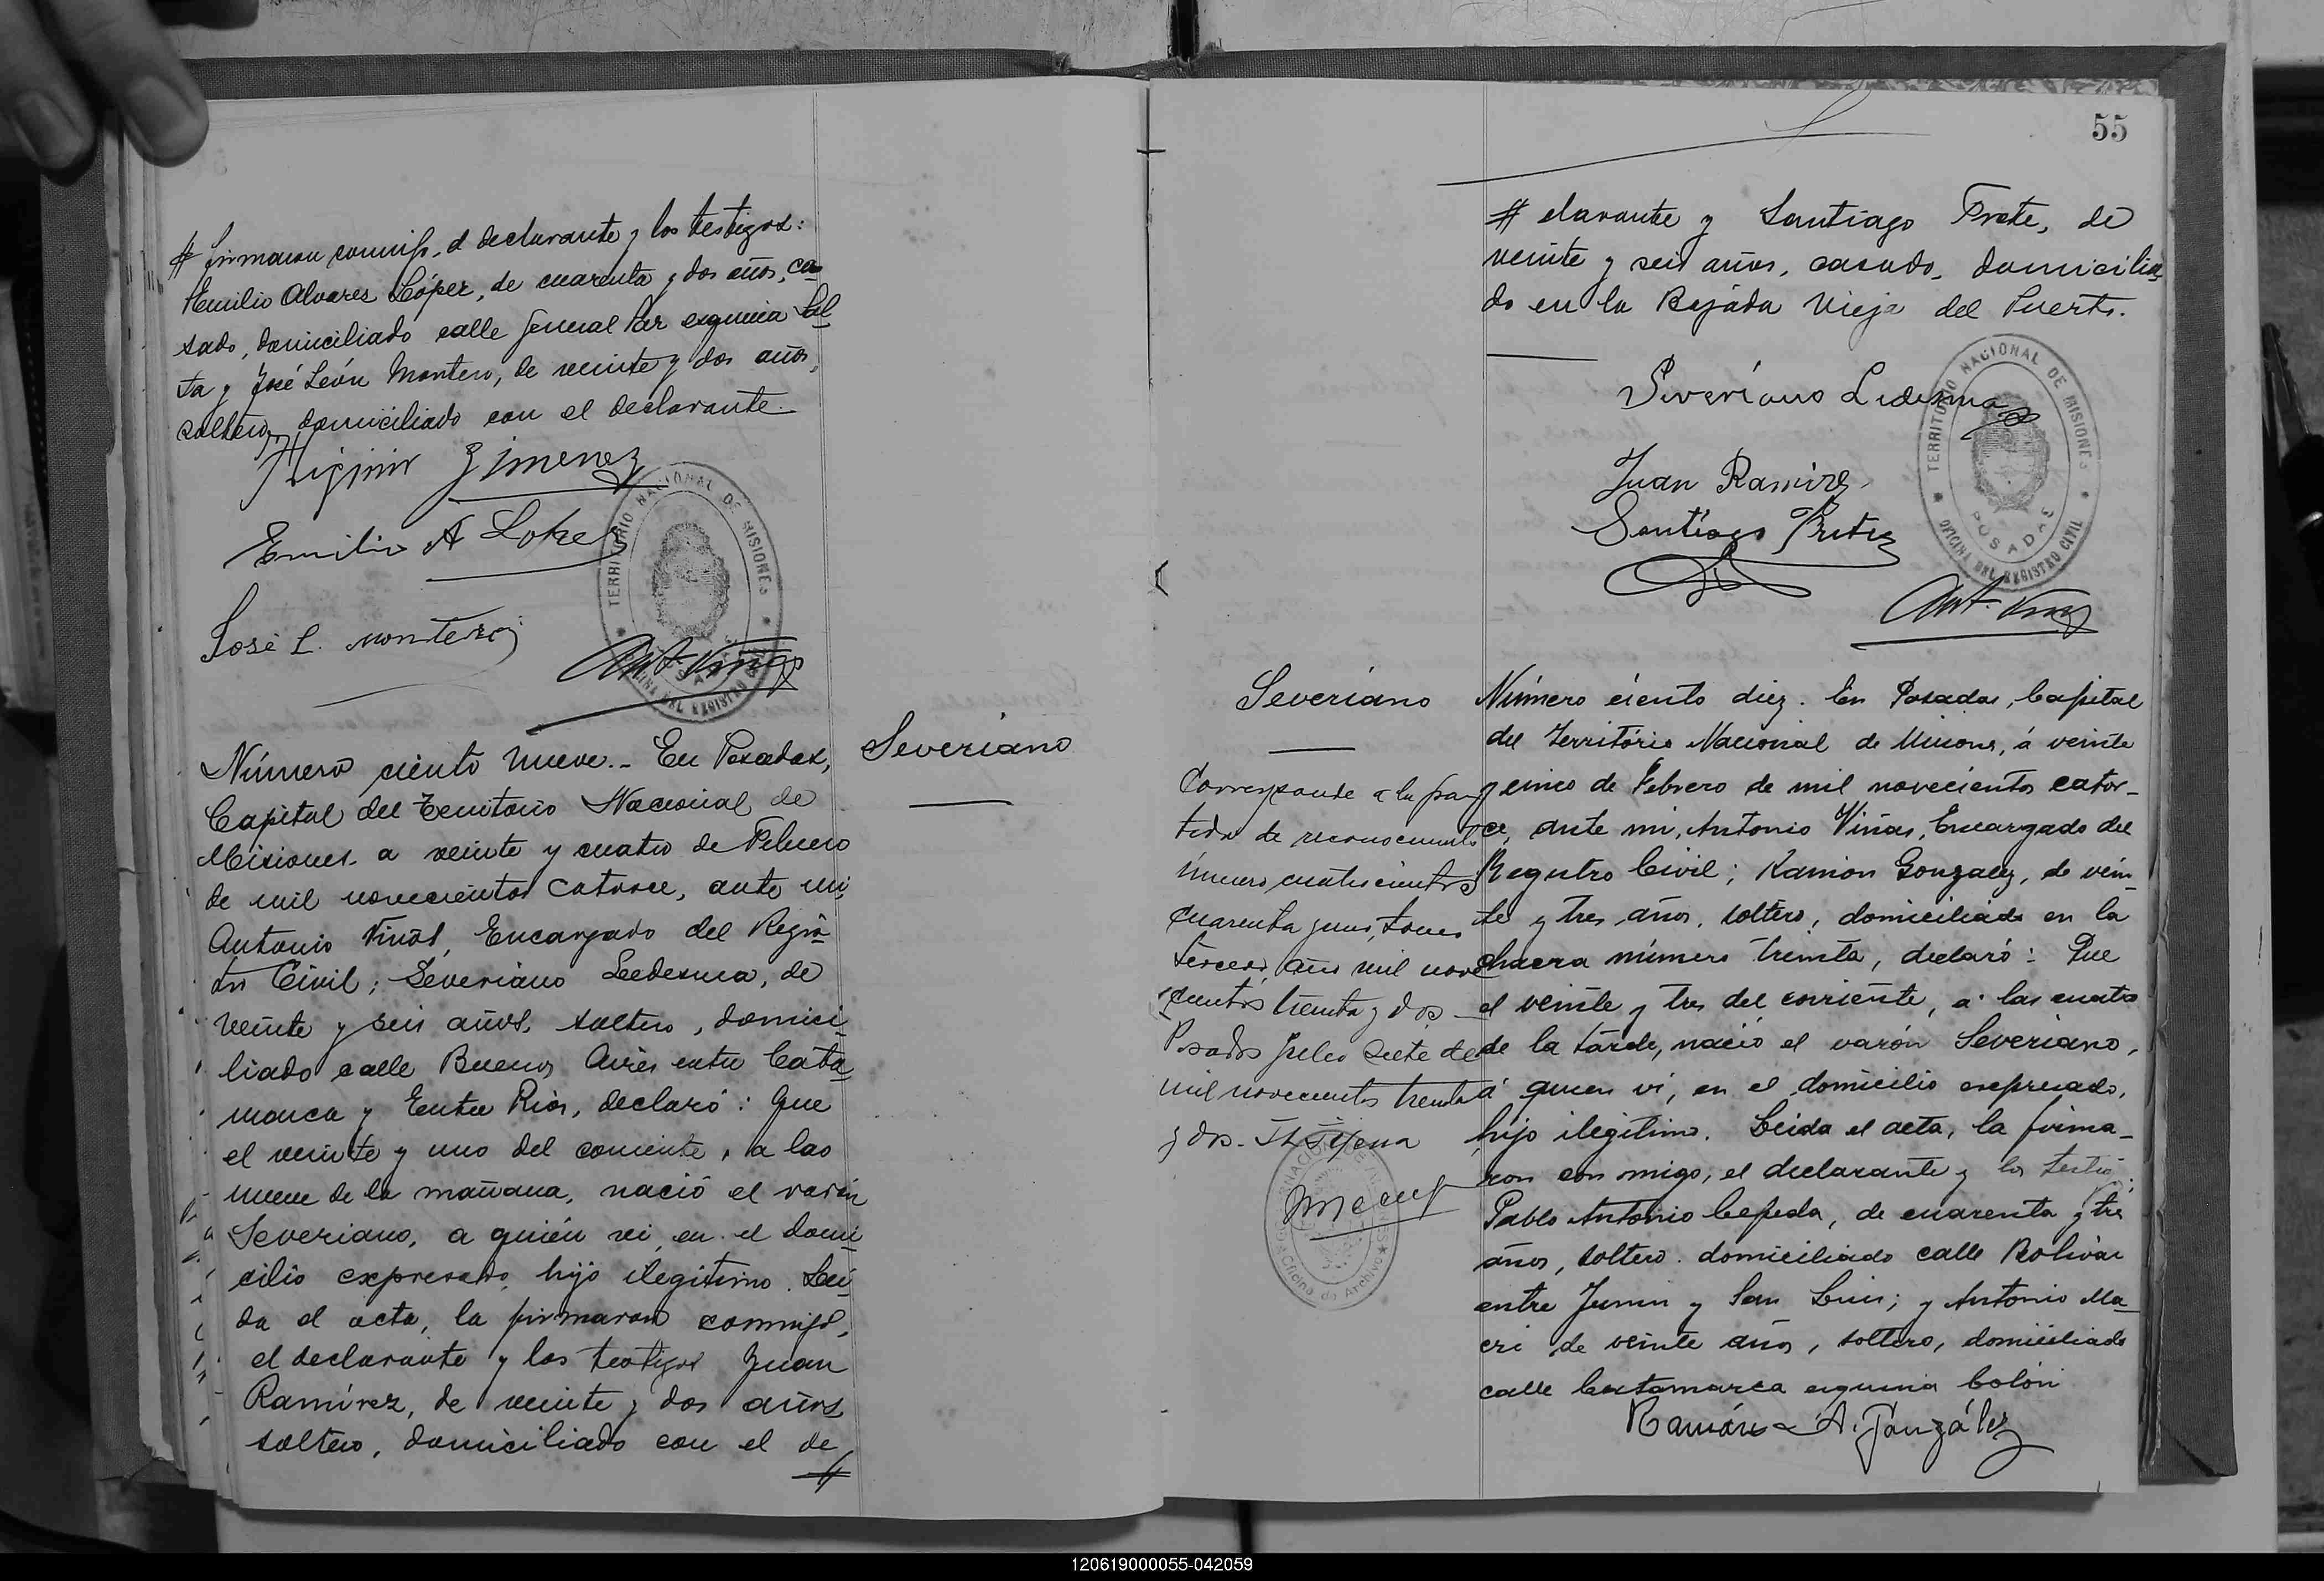 # firmaron conmigo, el declarante y los testigos:
Emilio Alvares López, de cuarenta y dos años, ca-
sado, domiciliado calle General Paz esquina Sal-
ta y José León Montero, de veinte y dos años,
soltero, domiciliado con el declarante.
Higinio Gimenez
Emilio A Lopez
José L. Montero
TERRITORIO NACIONAL DE MISIONES
OFICINA DEL REGISTRO CIVIL
POSADAS
Ant. Viñas
Severiano
Número ciento nueve.- En Posadas,
Capital del Territorio Nacional de
Misiones, a veinte y cuatro de Febrero
de mil novecientos catorce, ante mi,
Antonio Viñas, Encargado del Regis-
tro Civil; Severiano Ledesma, de
veinte y seis años, soltero, domici-
liado calle Buenos Aires entre Cata-
marca y Entre Rios, declaró: Que
el veinte y uno del corriente, a las
nueve de la mañana, nació el varón
Severiano, a quién vi, en el domi-
cilio expresado, hijo ilegitimo. Lei-
da el acta, la firmaron conmigo,
el declarante y los testigos Juan
Ramírez, de veinte y dos años
soltero, domiciliado con el de
#
55
# clarante y Santiago Prete, de
veinte y seis años, casado, domicilia-
do en la Bajada Vieja del Puerto.
Severiano Ledesma
Juan Ramirez
Santiago
TERRITORIO NACIONAL DE MISIONES
OFICINA DEL REGISTRO CIVIL
POSADAS
Ant. Viñas
Severiano
Corresponde a la par-
tida de reconocimiento
número cuatrocientos
cuarenta y uno, tomo
tercero, año mil nove
cientos treinta y dos
Posadas Julio siete de
mil novecientos treinta
y dos.
Oficina de Archivo
Número ciento diez. En Posadas, Capital
del Territorio Nacional de Misiones, á veinte
y cinco de Febrero de mil novecientos cator-
ce, ante mi, Antonio Viñas, Encargado del
Registro Civil; Ramon Gonzalez, de vein-
te y tres años, soltero, domiciliado en la
chacra número treinta, declaró: Que
el veinte y tres del corriente, a las cuatro
de la tarde, nació el varón Severiano,
á quien vi, en el domicilio expresado,
hijo ilegitimo. Leida el acta, la firma-
ron con migo, el declarante y los testigos
Pablo Antonio Cepeda, de cuarenta y tres
años, soltero, domiciliado calle Bolivar
entre Junin y San Luis; y Antonio Ma-
cri de veinte años, soltero, domiciliado
calle Catamarca esquina Colón
Ramón A. González
120619000055-042059